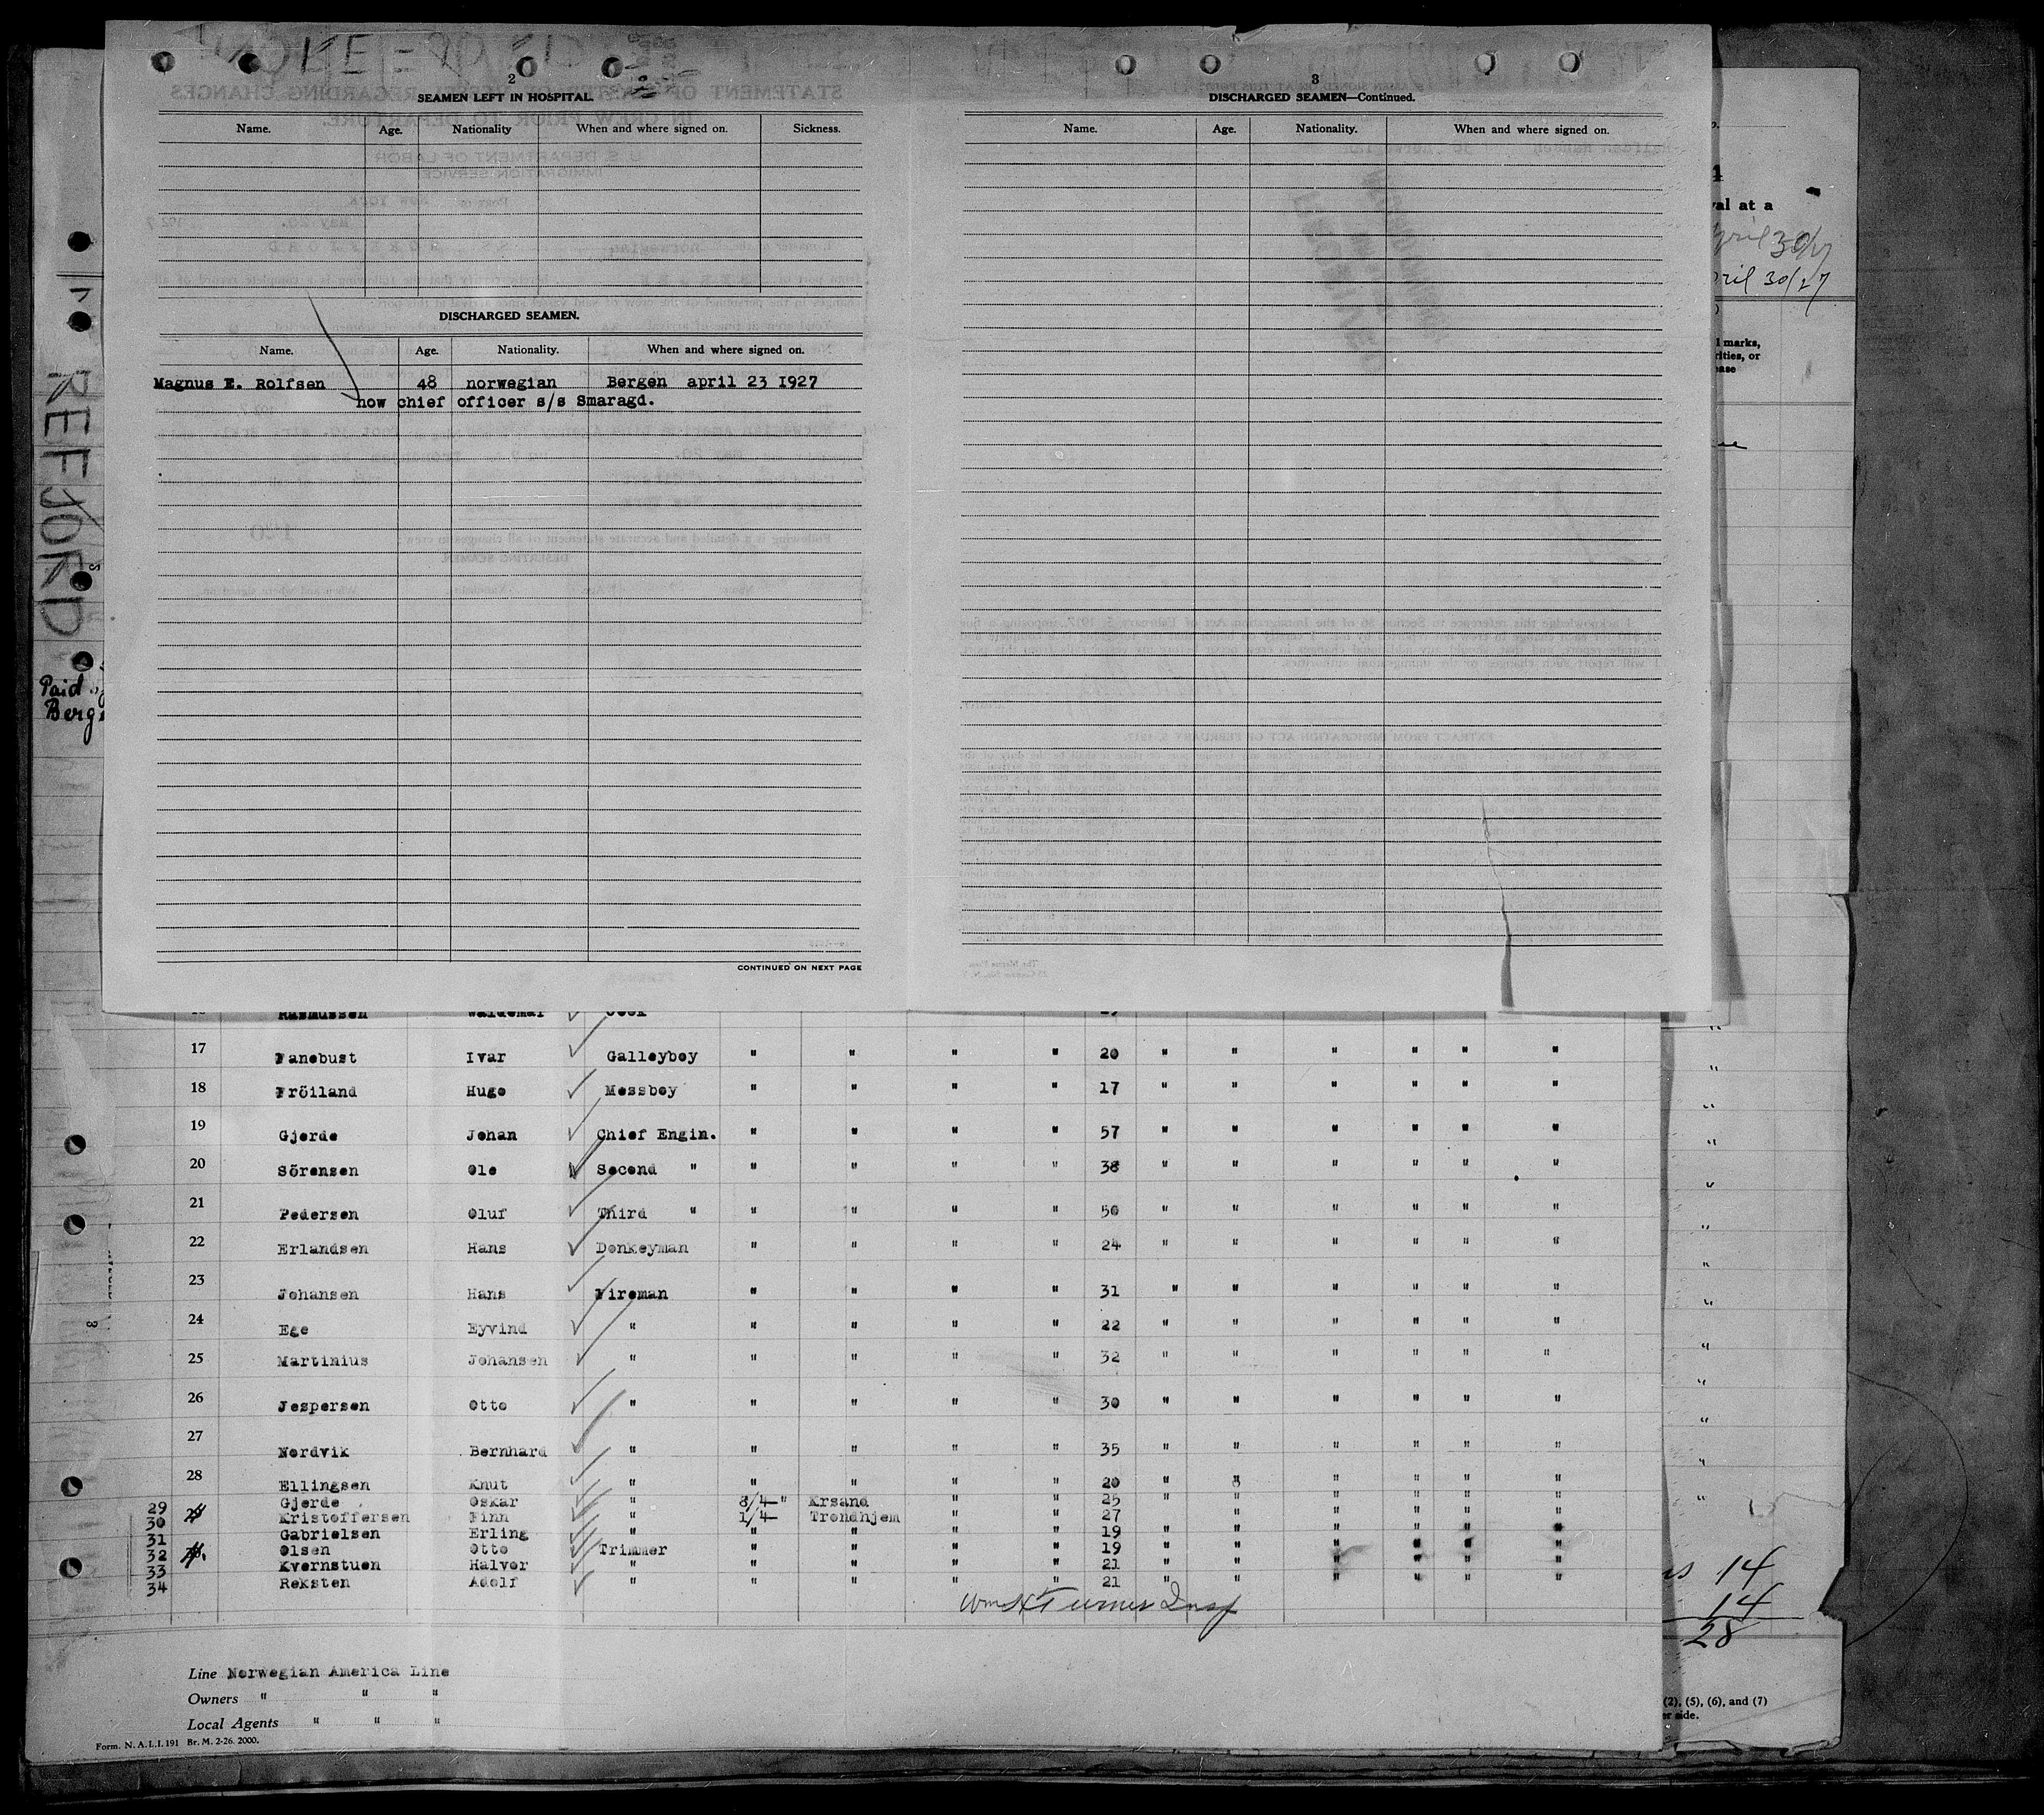 2
SEAMEN LEFT IN HOSPITAL.
Name. Age. Nationality When and where signed on. Sickness.
DISCHARGED SEAMEN.
Name. Age. Nationality. When and where signed on.
Magnus E. Rolfsen 48 norwegian Bergen april 23 1927
now chief officer s/s Smaragd.
CONTINUED ON NEXT PAGE
3
DISCHARGED SEAMEN—Continued.
Name. Age. Nationality. When and where signed on.
REFJORD
Paid
Berg
val at a
April 30/27
pril 30/27
l marks,
rities, or
ease
Rasmussen Waldemar Cook
17 Fanebust Ivar Galleyboy " " " " 20 " " " " " "
18 Fröiland Hugo Messboy " " " " 17 " " " " " "
19 Gjerde Johan Chief Engin. " " " " 57 " " " " " "
20 Sörensen Ole Second " " " " " 38 " " " " " "
21 Pedersen Oluf Third " " " " " 50 " " " " " "
22 Erlandsen Hans Donkeyman " " " " 24 " " " " " "
23 Johansen Hans Fireman " " " " 31 " " " " " "
24 Ege Eyvind " " " " " 22 " " " " " "
25 Martinius Johansen " " " " " 32 " " " " " "
26 Jespersen Otto " " " " " 30 " " " " " "
27 Nordvik Bernhard " " " " " 35 " " " " " "
28 Ellingsen Knut " " " " " 20 " 3 " " " "
29 Gjerde Oskar " 8/4-" Krsand " " 25 " " " " " "
30 Kristoffersen Finn " 1/4- Trondhjem " " 27 " " " " " "
31 Gabrielsen Erling " " " " " 19 " " " " " "
32 Olsen Otto Trimmer " " " " 19 " " " " " "
33 Kvernstuen Halvor " " " " " 21 " " " " " "
34 Reksten Adolf " " " " " 21 " " " " " "
Wm H Turner Insp
14
14
28
Line Norwegian America Line
Owners " " "
Local Agents " " "
Form. N. A. L. I. 191 Br. M. 2-26. 2000.
(2), (5), (6), and (7)
er side.